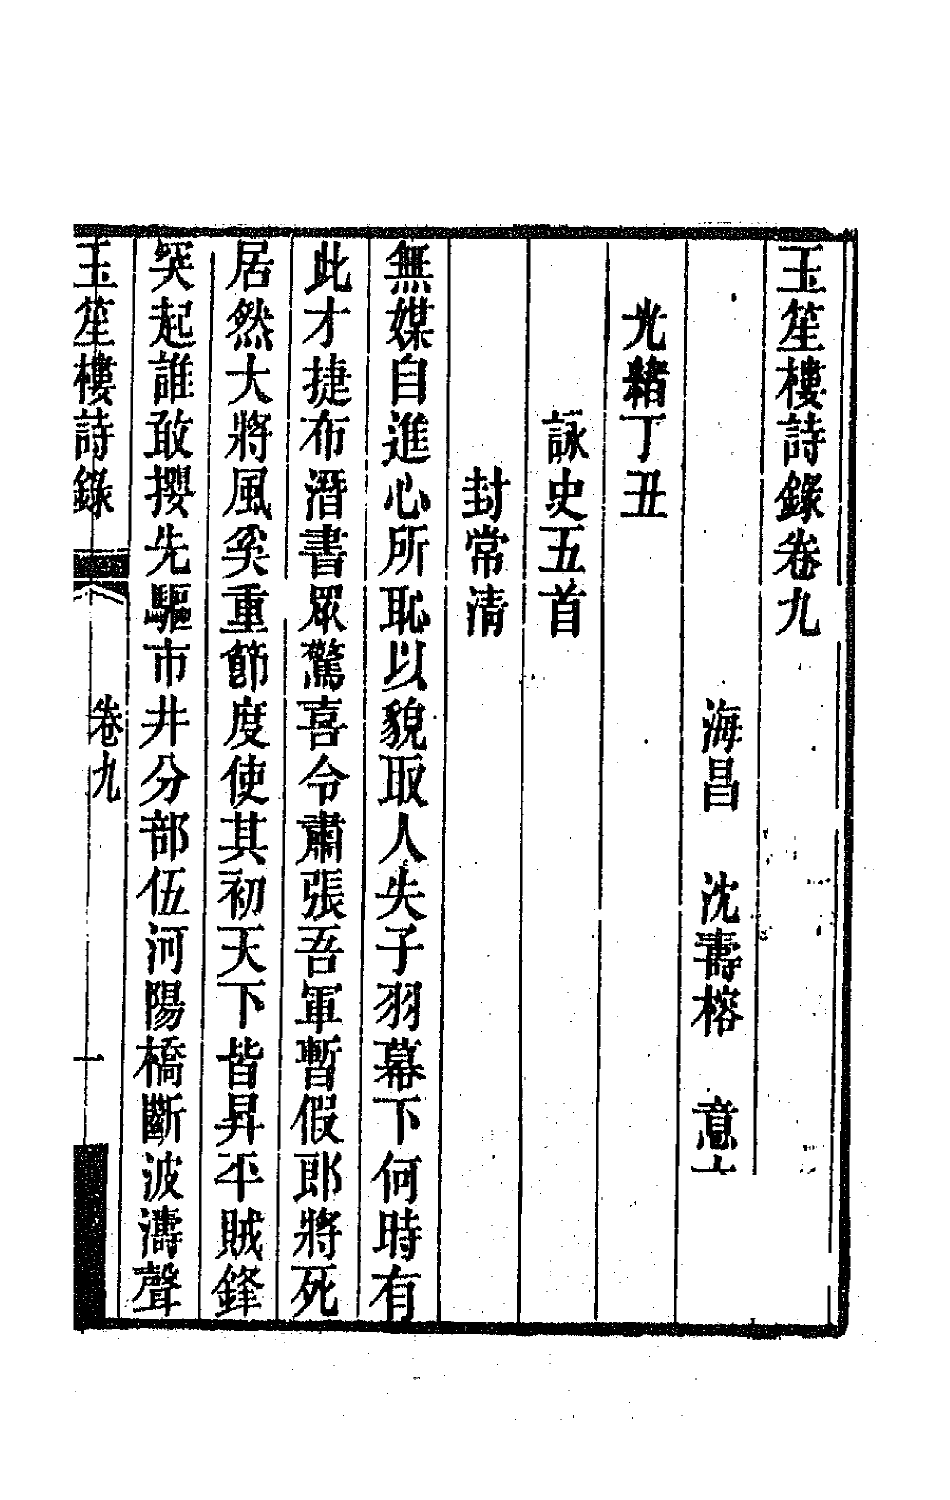 玉笙樓詩錄卷九
海昌 沈壽榕 意
光緒丁丑
詠史五首
封常清
無媒自進心所恥以貌取人失子羽幕下何時有
此才捷布潛書眾驚喜令肅張吾軍暫假郎將死
居然大將風奚重節度使其初天下皆昇平賊鋒
突起誰敢攖先驅市井分部伍河陽橋斷波濤聲
玉笙樓詩錄 卷九 一